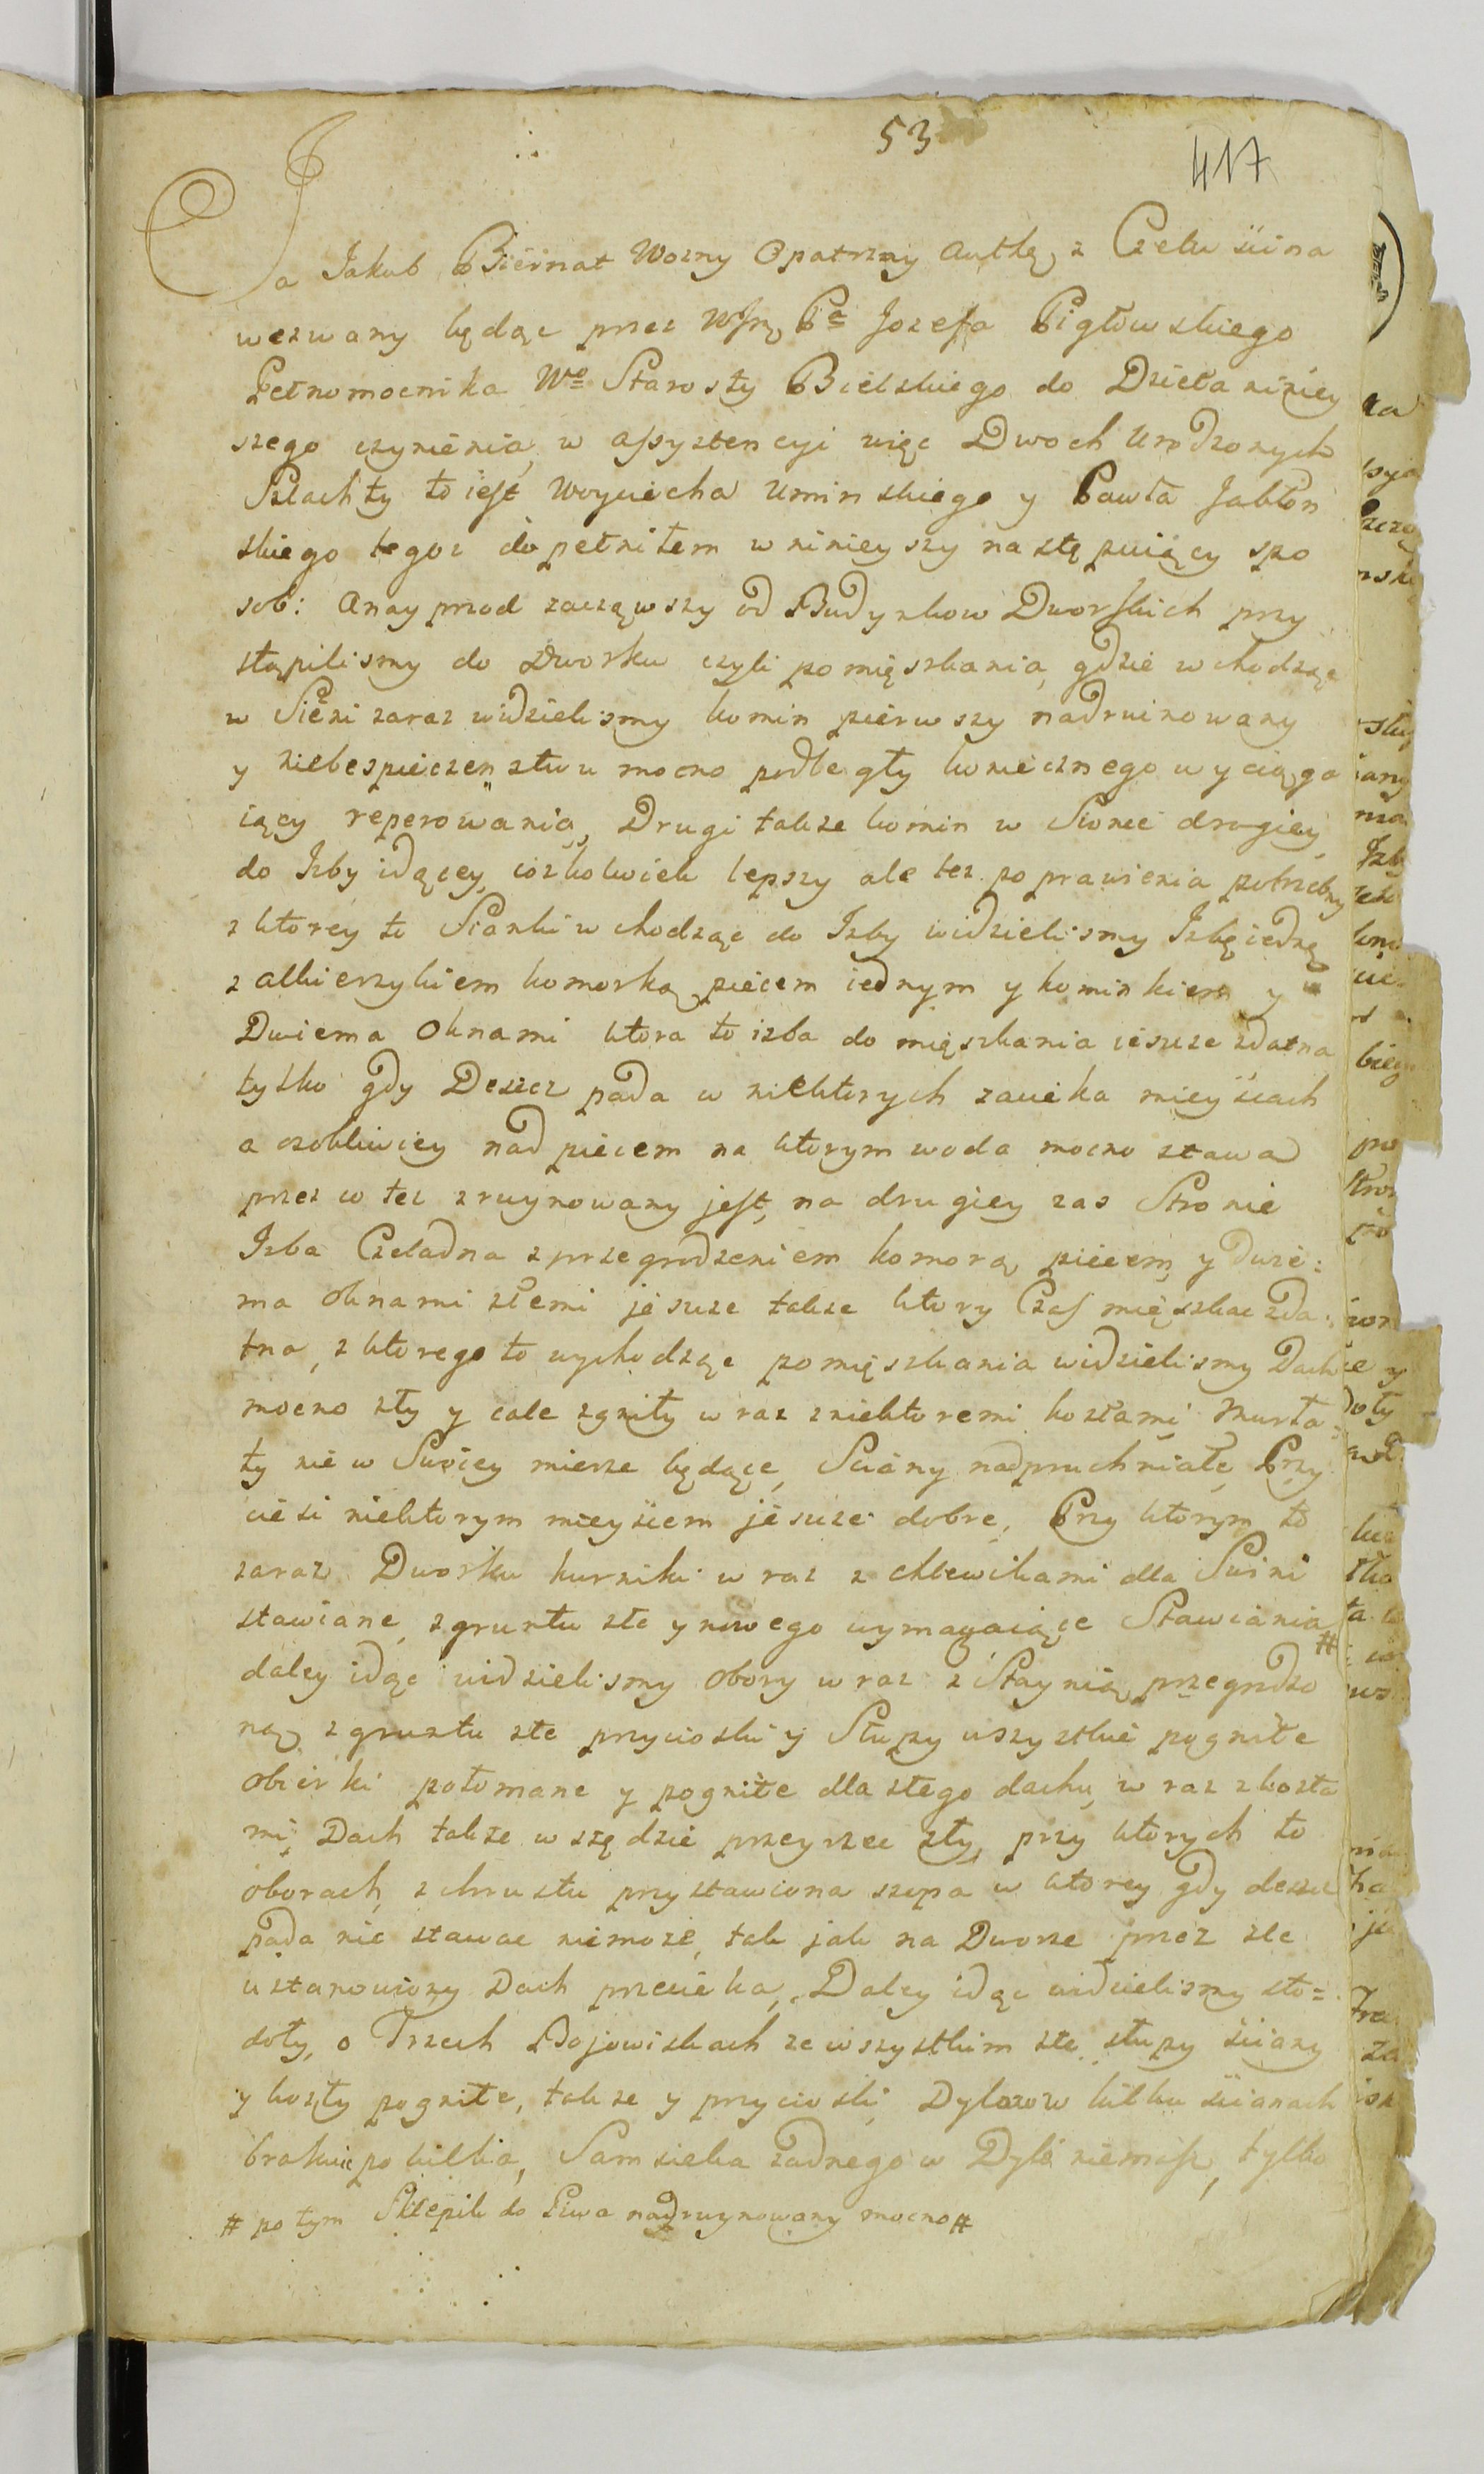 53
417
Ja Jakub Biernat Wozny Opatrzny Autkę z Czeluścina
wezwany będąc przez WJmę Pa Jozefa Pigłowskiego
Pełnomocnika Wo Starosty Bielskiego do Dzieła niniey
szego czynienia, w assystencyi więc Dwoch Urodzonych
Szlachty to iest Woyciecha Uminskiego y Pawła Jabłon
skiego tegoz dopełniłem w ninieyszy następuiący spo
sob: Anayprzod zacząwszy od Budynkow Dworskich przy
stąpilismy do Dworku czyli pomięszkania, gdzie wchodząc
w Sieni zaraz widzielismy komin pierwszy nadruinowany
y niebespieczenstwu mocno podległy koniecznego wyciąga
iący reperowania, Drugi takze komin w Sionce drugiey
do Izby idącey, cożkolwiek lepszy ale tez poprawienia potrzebny
z ktorey to Sionki wchodząc do Izby widzielismy Izbę iednę
z alkierzykiem komorką, piecem iednym y kominkiem y
Dwiema Oknami ktora to izba do mięszkania ieszcze zdatna
tylko gdy Deszcz pada w niektorych zacieka mieyscach
a osobliwiey nad piecem na ktorym woda mocno stawa
przez co tez zruynowany jest, na drugiey zas Stronie
Izba Czeladna z przegrodzeniem komorą piecem, y dwie:
ma oknami złemi jeszcze takze ktory Czas mięszkac zda:
tna, z ktorego to wychodząc pomięszkania widzielismy Dach
mocno zły y cale zgniły wraz z niektoremi kozłami, Murła:
ty nie w Swoiey mierze będące, Sciany nadpruchniałe Przy
ciesi niektorym mieyscem jeszcze dobre, Przy ktorym to
zaraz Dworku kurniki wraz z chlewikami dla Swini
stawiane, z gruntu złe y nowego wymagaiące Stawiania #
daley idąc widzielismy Obory wraz z Staynią przegrodzo
ną, z gruntu złe przycioski y Słupy wszystkie pogniłe
obierki połomane y pogniłe dla złego dachu, wraz z kozła
mi, Dach takze wszędzie przeyrzec zły, przy ktorych to
oborach, z chrustu przystawiona szopa w ktorey gdy deszcz
pada nic stawac niemoze, tak jak na Dworze przez zle
ustanowiony Dach przecieka, Daley idąc widzielismy sto=
doły, o Trzech Bojowiskach ze wszystkim złe słupy sciany
y kozły pogniłe, takze y przycioski, Dylozow kilku scianach
brakuie po kilka, Samsieka zadnego w Dyle niemasz, tylko
# po tym Sklepik do Piwa nadruynowany mocno #